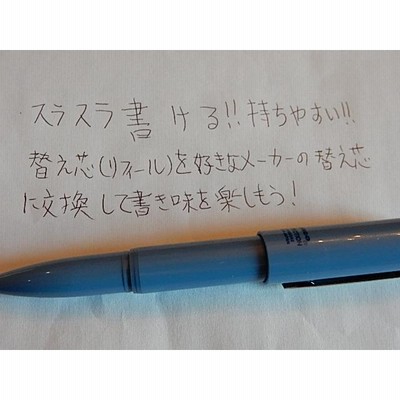 スラスラ書ける!!持ちやすい!!
替え芯(リフィール)を好きなメーカーの替え芯
に交換して書き味を楽しもう!